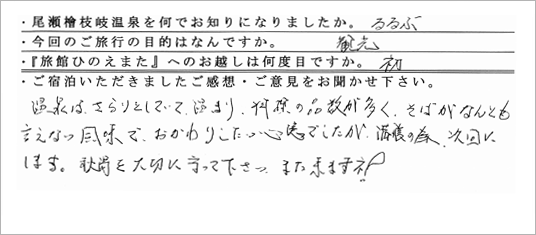 ・尾瀬檜枝岐温泉を何でお知りになりましたか。 るるぶ
・今回のご旅行の目的はなんですか。 観光
・『旅館ひのえまた』へのお越しは何度目ですか。 初
・ご宿泊いただきましたご感想・ご意見をお聞かせ下さい。
温泉は、さらりとしていて、温まり、料理の品数が多く、そばがなんとも
言えない風味で、おかわりしたい心境でしたが、満腹の為、次回に
します。秘湯を大切に守って下さい。また来ますネ!